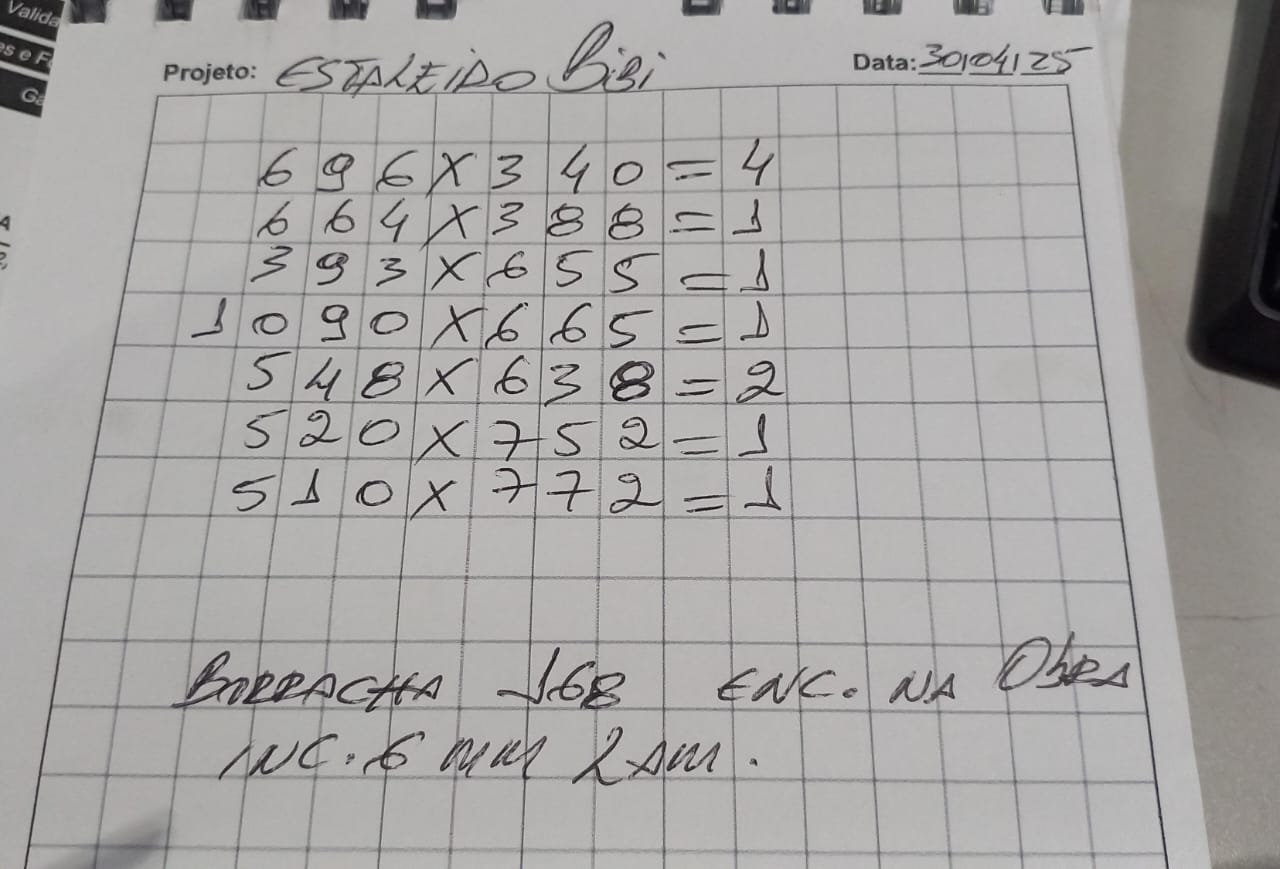 Valida
es e F
Ga
Projeto: ESTALEIRO BiBi Data: 30/04/25
696X340=4
664X388=1
393X655=1
1090X665=1
548X638=2
520X752=1
510X772=1
BORRACHA 168 ENC. NA ObRA
INC. 6 mm LAM.